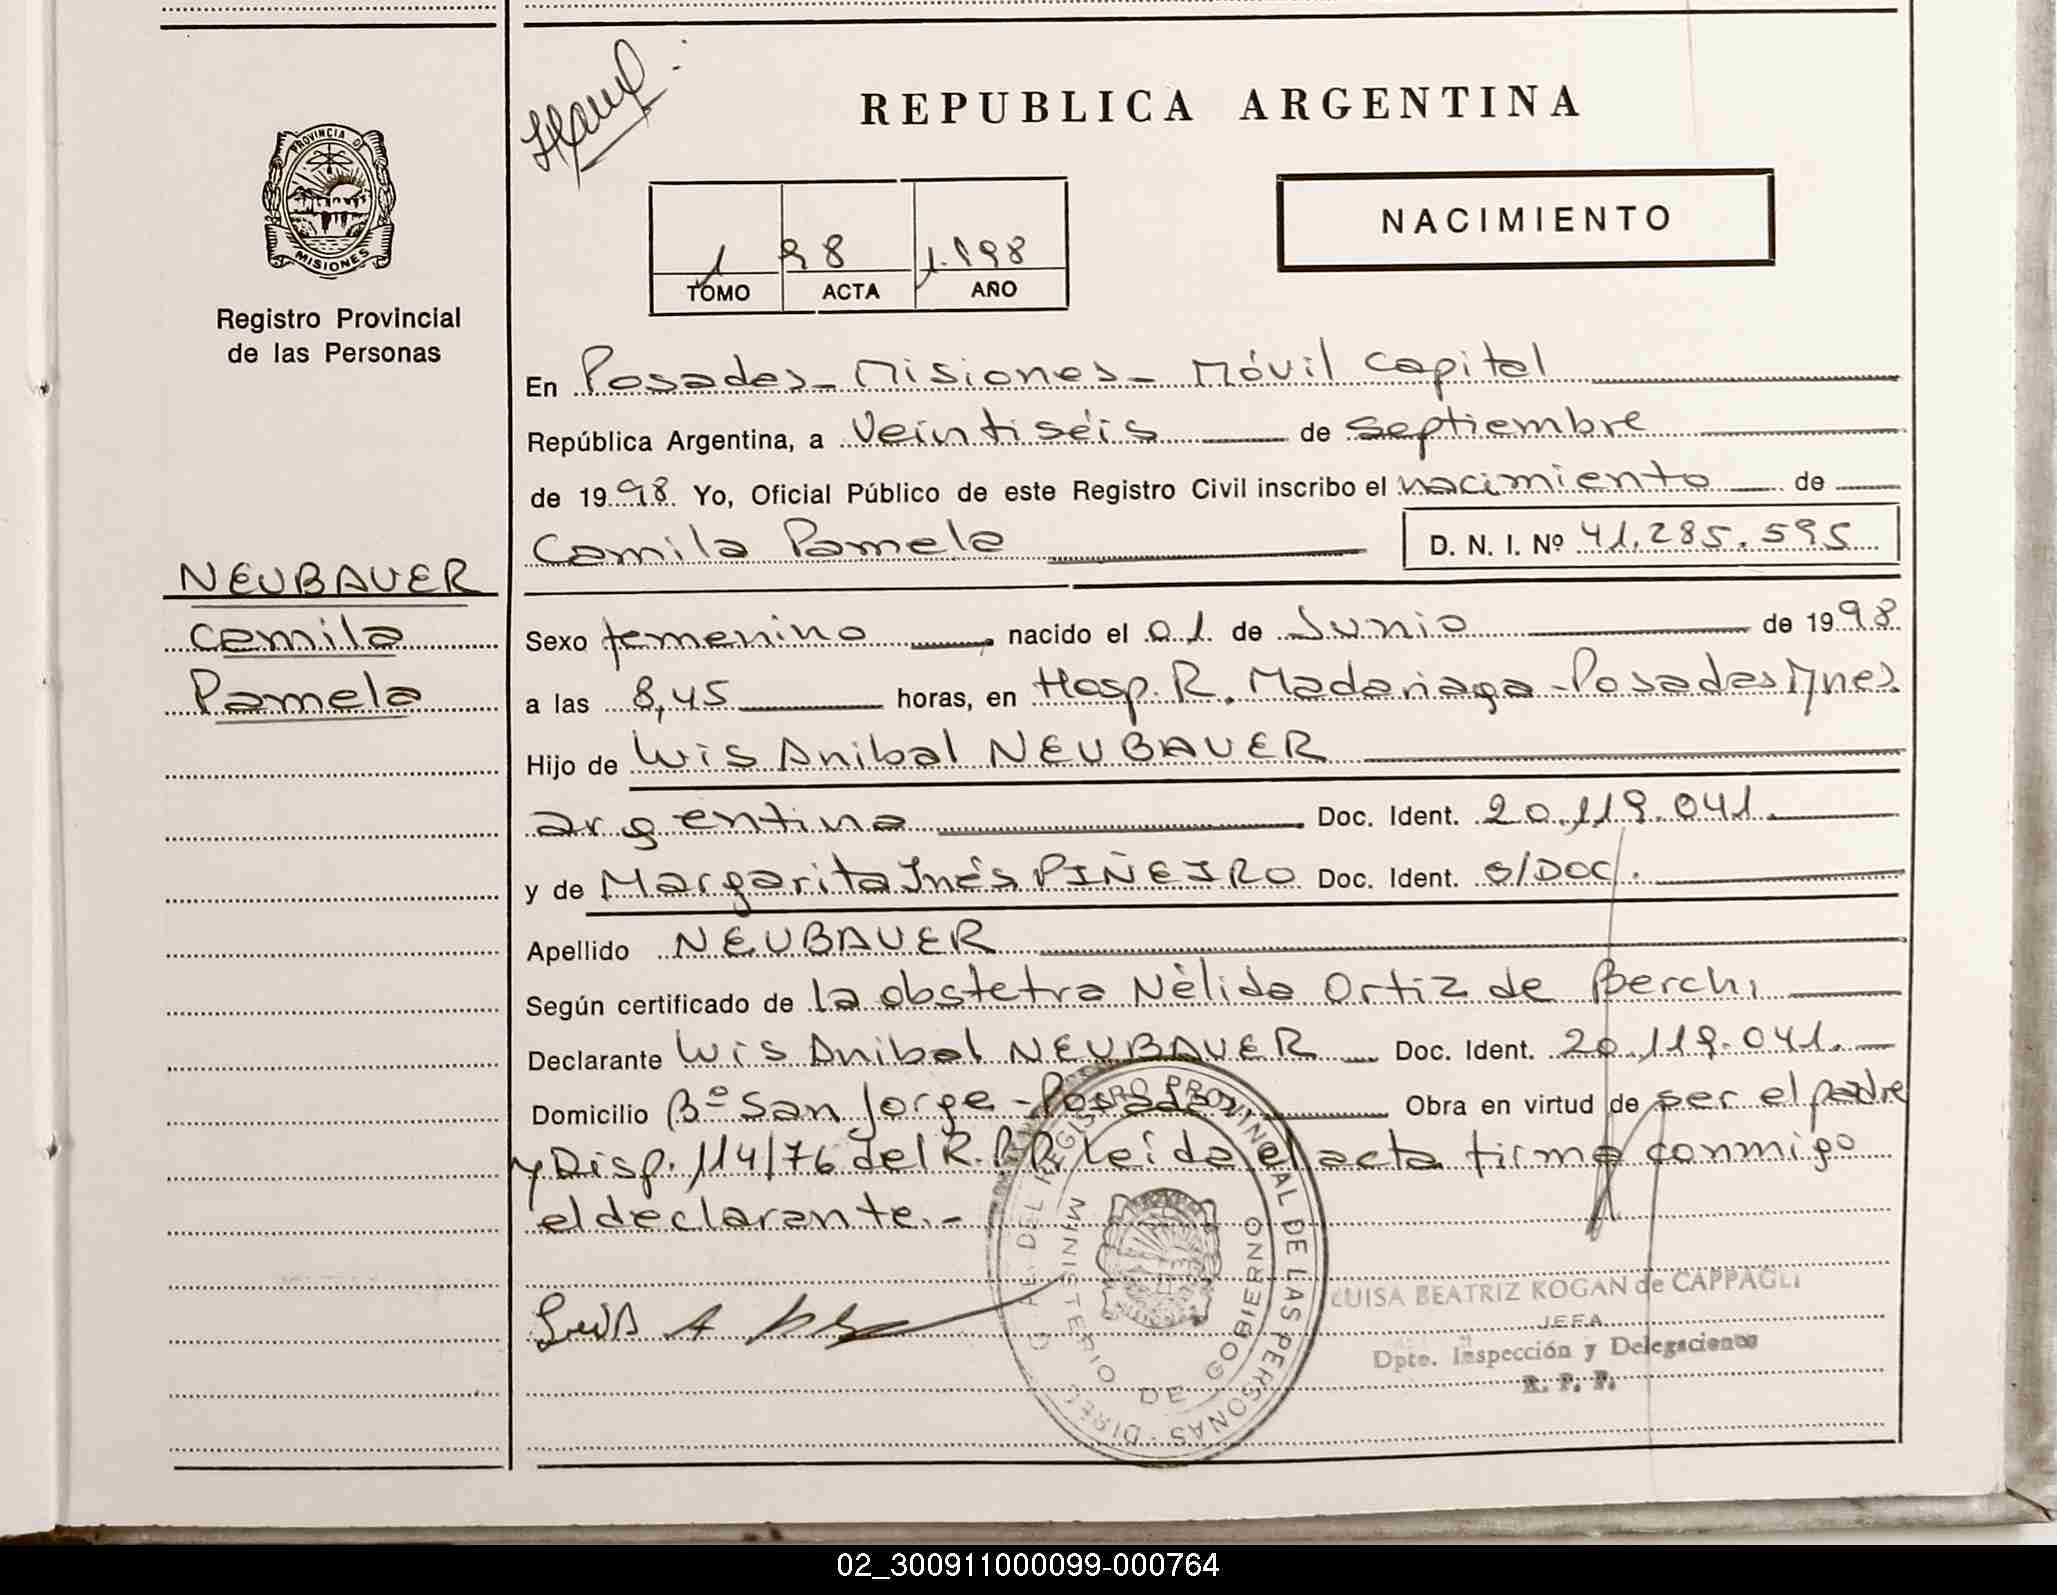 REPUBLICA ARGENTINA
PROVINCIA DE
MISIONES
Registro Provincial
de las Personas
NACIMIENTO
1 28 1.998
TOMO ACTA AÑO
En Posadas - Misiones - Móvil Capital
República Argentina, a Veintiséis de Septiembre
de 1998 Yo, Oficial Público de este Registro Civil inscribo el nacimiento de
Camila Pamela D. N. I. Nº 41.285.595
NEUBAUER
Camila
Pamela
Sexo femenino, nacido el 01 de Junio de 1998
a las 8,45 horas, en Hosp. R. Madariaga - Posadas Mnes.
Hijo de Luis Anibal NEUBAUER
argentina Doc. Ident. 20.119.041.
y de Margarita Inés PIÑEIRO Doc. Ident. S/DOC.
Apellido NEUBAUER
Según certificado de la obstetra Nèlida Ortiz de Berchi
Declarante Luis Anibal NEUBAUER Doc. Ident. 20.119.041.
Domicilio Bº San Jorge - Posadas. Obra en virtud de ser el padre
y Disp. 114/76 del R.P.P. Leída el acta firma conmigo
el declarante.-
Luis A
DIREC. GRAL. DEL REGISTRO PROVINCIAL DE LAS PERSONAS
MINISTERIO DE GOBIERNO
LUISA BEATRIZ KOGAN de CAPPAGLI
JEFA
Dpto. Inspección y Delegaciones
R. P. P.
02_300911000099-000764